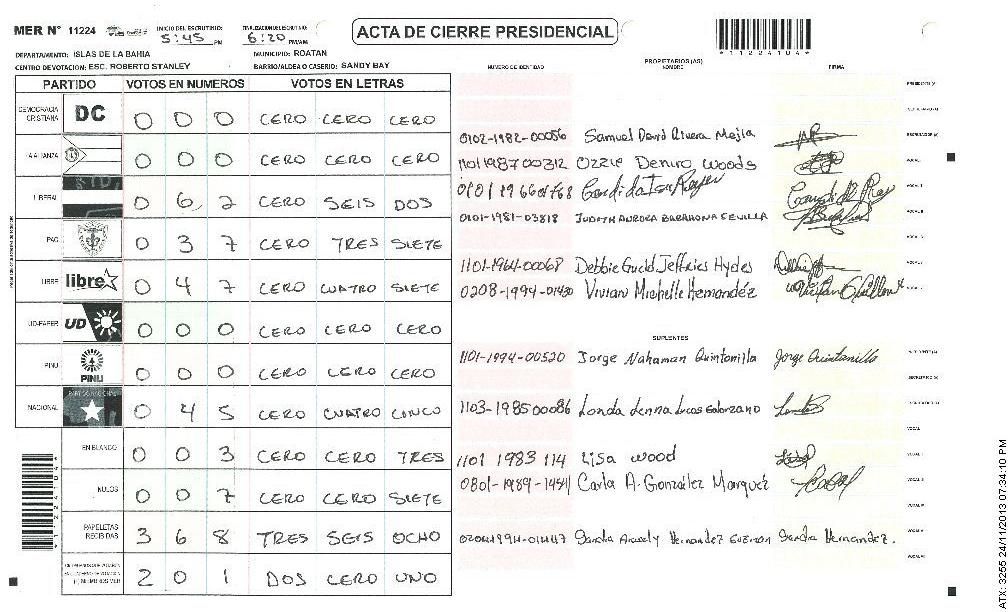 MER N° 11224 INICIO DEL ESCRUTINIO: 5:45 PM FINALIZACION DEL ESCRUTINIO: 6:20 PM/AM ACTA DE CIERRE PRESIDENCIAL
*11224104*
DEPARTAMENTO: ISLAS DE LA BAHIA MUNICIPIO: ROATAN
CENTRO DE VOTACION: ESC. ROBERTO STANLEY BARRIO/ALDEA O CASERIO: SANDY BAY
NUMERO DE IDENTIDAD PROPIETARIOS (AS) NOMBRE FIRMA
PARTIDO VOTOS EN NUMEROS VOTOS EN LETRAS
DEMOCRACIA CRISTIANA DC 0 0 0 CERO CERO CERO
ALIANZA 0 0 0 CERO CERO CERO
LIBERAL 0 6 2 CERO SEIS DOS
PAC 0 3 7 CERO TRES SIETE
LIBRE libre 0 4 7 CERO CUATRO SIETE
UD-FAPER UD 0 0 0 CERO CERO CERO
PINU PINU 0 0 0 CERO CERO CERO
NACIONAL PARTIDO NACIONAL 0 4 5 CERO CUATRO CINCO
EN BLANCO 0 0 3 CERO CERO TRES
NULOS 0 0 7 CERO CERO SIETE
PAPELETAS RECIBIDAS 3 6 8 TRES SEIS OCHO
2 0 1 DOS CERO UNO
0102-1982-00056 Samuel David Rivera Mejia
1101198700312 Ozzie Deniro Woods
0101-1981-03818 JUDITH AURORA BARAHONA SEVILLA
1101-1964-00068 Debbie Guild Jeffries Hydes
0208-1994-01430 Vivian Michelle Hernandéz
SUPLENTES
1101-1994-00520 Jorge Nahaman Quintanilla Jorge Quintanilla
1103-198500086 Londa Lenna Lucas Solorzano
1101 1983 114 Lisa wood
0801-1989-1454 Carla A. González Marquez
Sandra Aracely Hernandez Guzman Sandra Hernandez.
ATX: 3255 24/11/2013 07:34:10 PM